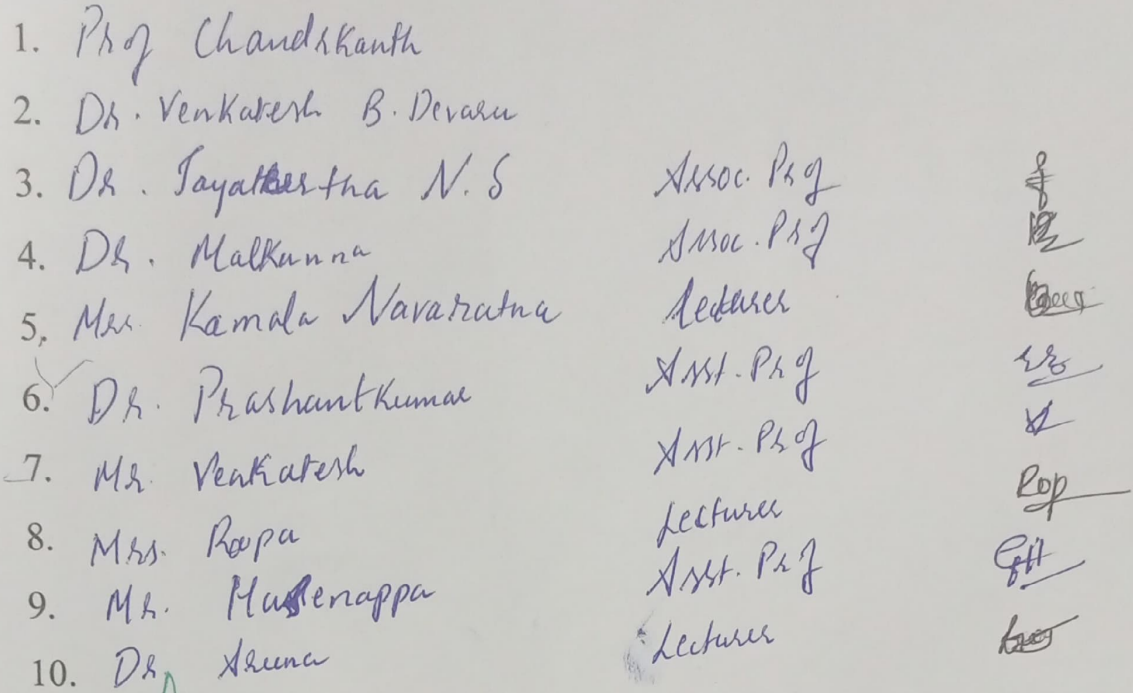 1. Prof Chandrkanth
2. Dr. Venkatesh B. Devaru
3. Dr. Jayatheertha N. S Assoc. Prof
4. Dr. Malkunna Assoc. Prof
5. Mrs. Kamala Navaratna Lecturer
6. Dr. Prashantkumar Asst. Prof
7. Mr. Venkatesh Asst. Prof
8. Mrs. Roopa Lecturer Rop
9. Mr. Asst. Prof
10. Dr Aruna Lecturer